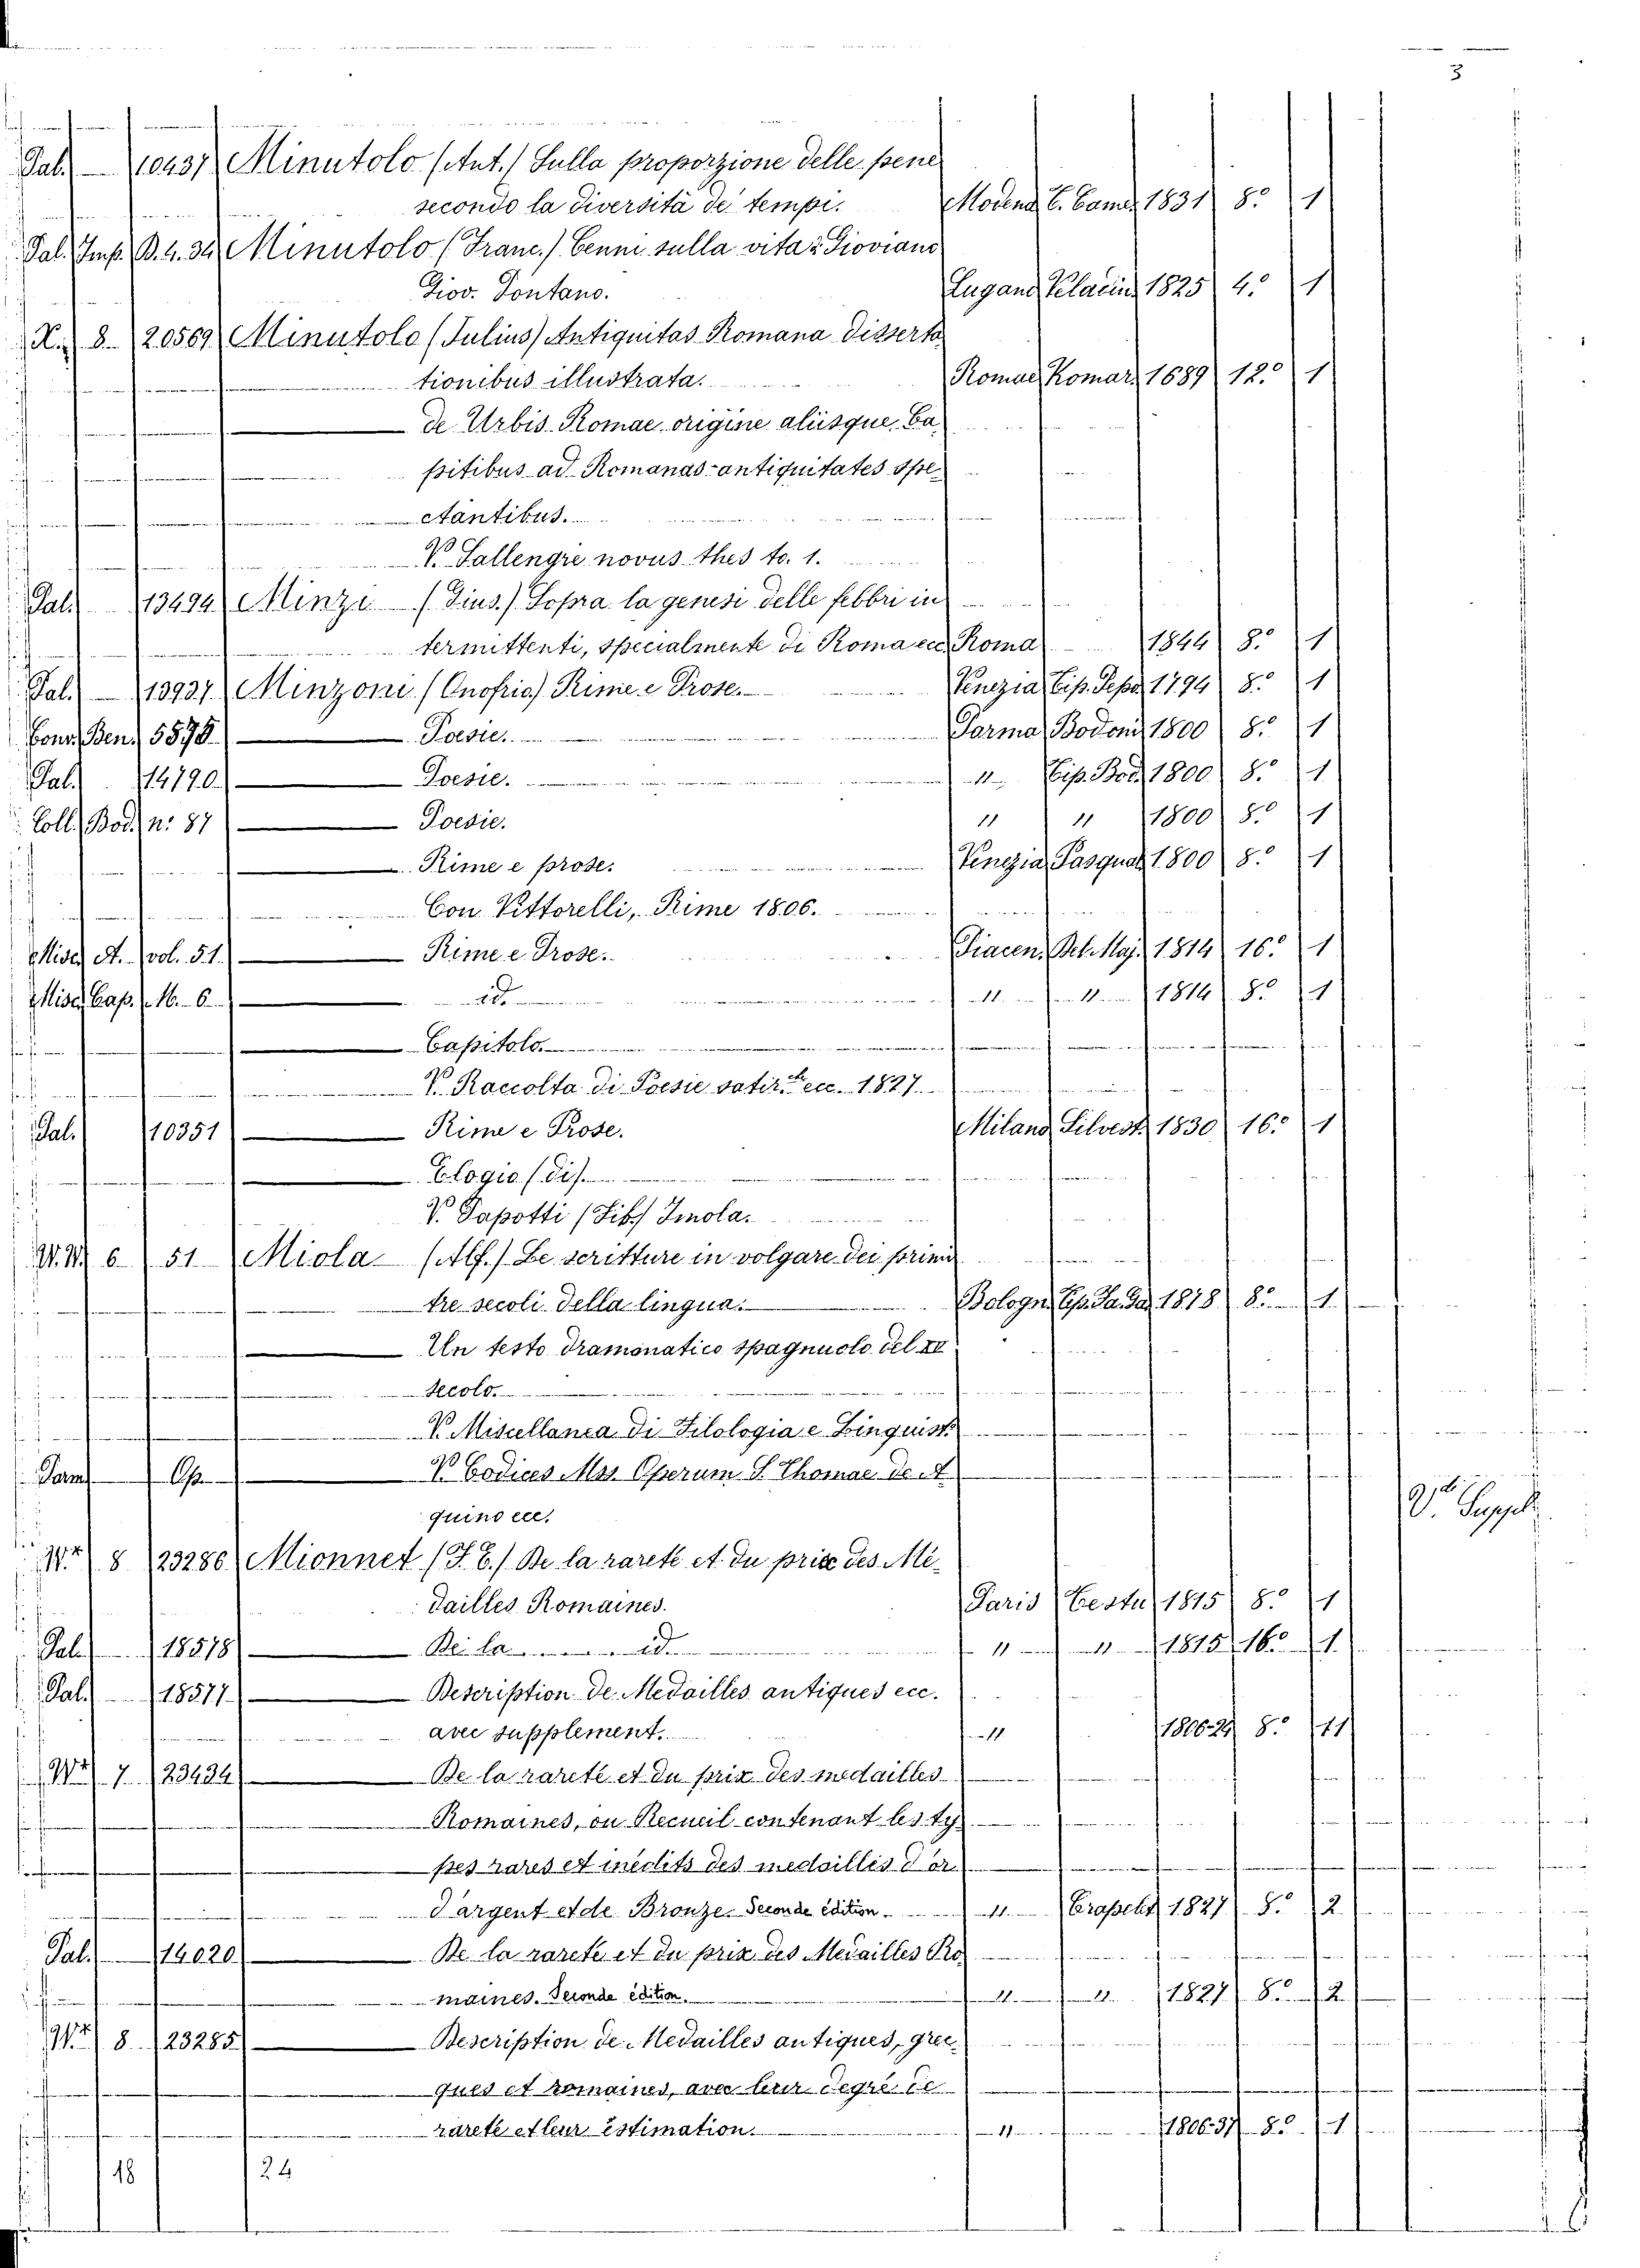 3
Pal. 10437 Minutolo (Ant.) Sulla proporzione delle pene
secondo la diversità de' tempi. Modena E. Came. 1831 8.º 1
Pal. Imp. B. 4. 34 Minutolo (Franc.) Cenni sulla vita di Gioviano
Giov. Pontano. Lugano Velacini 1825 4.º 1
N. 8. 20569 Minutolo (Julius) Antiquitas Romana disserta
tionibus illustrata. Romae Komar. 1689 12.º 1
de Urbis Romae origine aliisque Ca
pitibus ad Romanas antiquitates spe
ctantibus.
V. Sallengre novus thes to. 1.
Pal. 13494 Minzi (Gius.) Sopra la genesi delle febbri in
termittenti, specialmente di Roma ecc. Roma 1844 8.º 1
Pal. 13937 Minzoni (Onofrio) Rime e Prose. Venezia Tip. Pepo. 1794 8.º 1
Cons. Ben. 5578 Poesie. Parma Bodoni 1800 8.º 1
Pal. 14790 Poesie. 11 Tip. Bod. 1800 8.º 1
Coll. Bod. n.º 87 Poesie. 11 11 1800 8.º 1
Rime e prose. Venezia Pasqual. 1800 8.º 1
Con Vittorelli, Rime 1806.
Misc. A. vol. 51. Rime e Prose. Piacen. Del Maj. 1814 16.º 1
Misc. Cap. M. 6 id. 11 11 1814 8.º 1
Capitolo.
V. Raccolta di Poesie satir.che ecc. 1827.
Pal. 10351 Rime e Prose. Milano Silvest. 1830 16.º 1
Elogio (di)
V. Papotti (Tib.) Imola.
6 51 Miola (Alf.) Le scritture in volgare dei primi
tre secoli della lingua. Bologna Tip. Fa. Ga. 1878 8.º 1
Un testo dramonatico spagnuolo del XV
secolo.
V. Miscellanea di Filologia e Linguist.
Farn. Op. V. Codices Mss Operum S. Thomae de A
quino ecc.
V.di Suppl.
8 23286 Mionnet (T. E.) De la rareté et du prix des Mé-
dailles Romaines. Paris Testu 1815 8.º 1
Pal. 18578 De la id. 11 11 1815 16.º 1
Pal. 18577 Description de Medailles antiques ecc.
avec supplement. 11 1806-29 8.º 11
7 23434 De la rareté et du prix des medailles
Romaines, ou Recueil contenant les ty
pes rares et inédits des medailles d'or
d'argent et de Bronze. Seconde édition. 11 Crapelet 1827 8.º 2
Pal. 14020 De la rareté et du prix des Medailles Ro
maines. Seconde édition. 11 11 1827 8.º 2
8 23285 Description de Medailles antiques, grec
ques et romaines, avec leur degré de
rareté et leur estimation. 11 1806-37 8.º 1
18 24